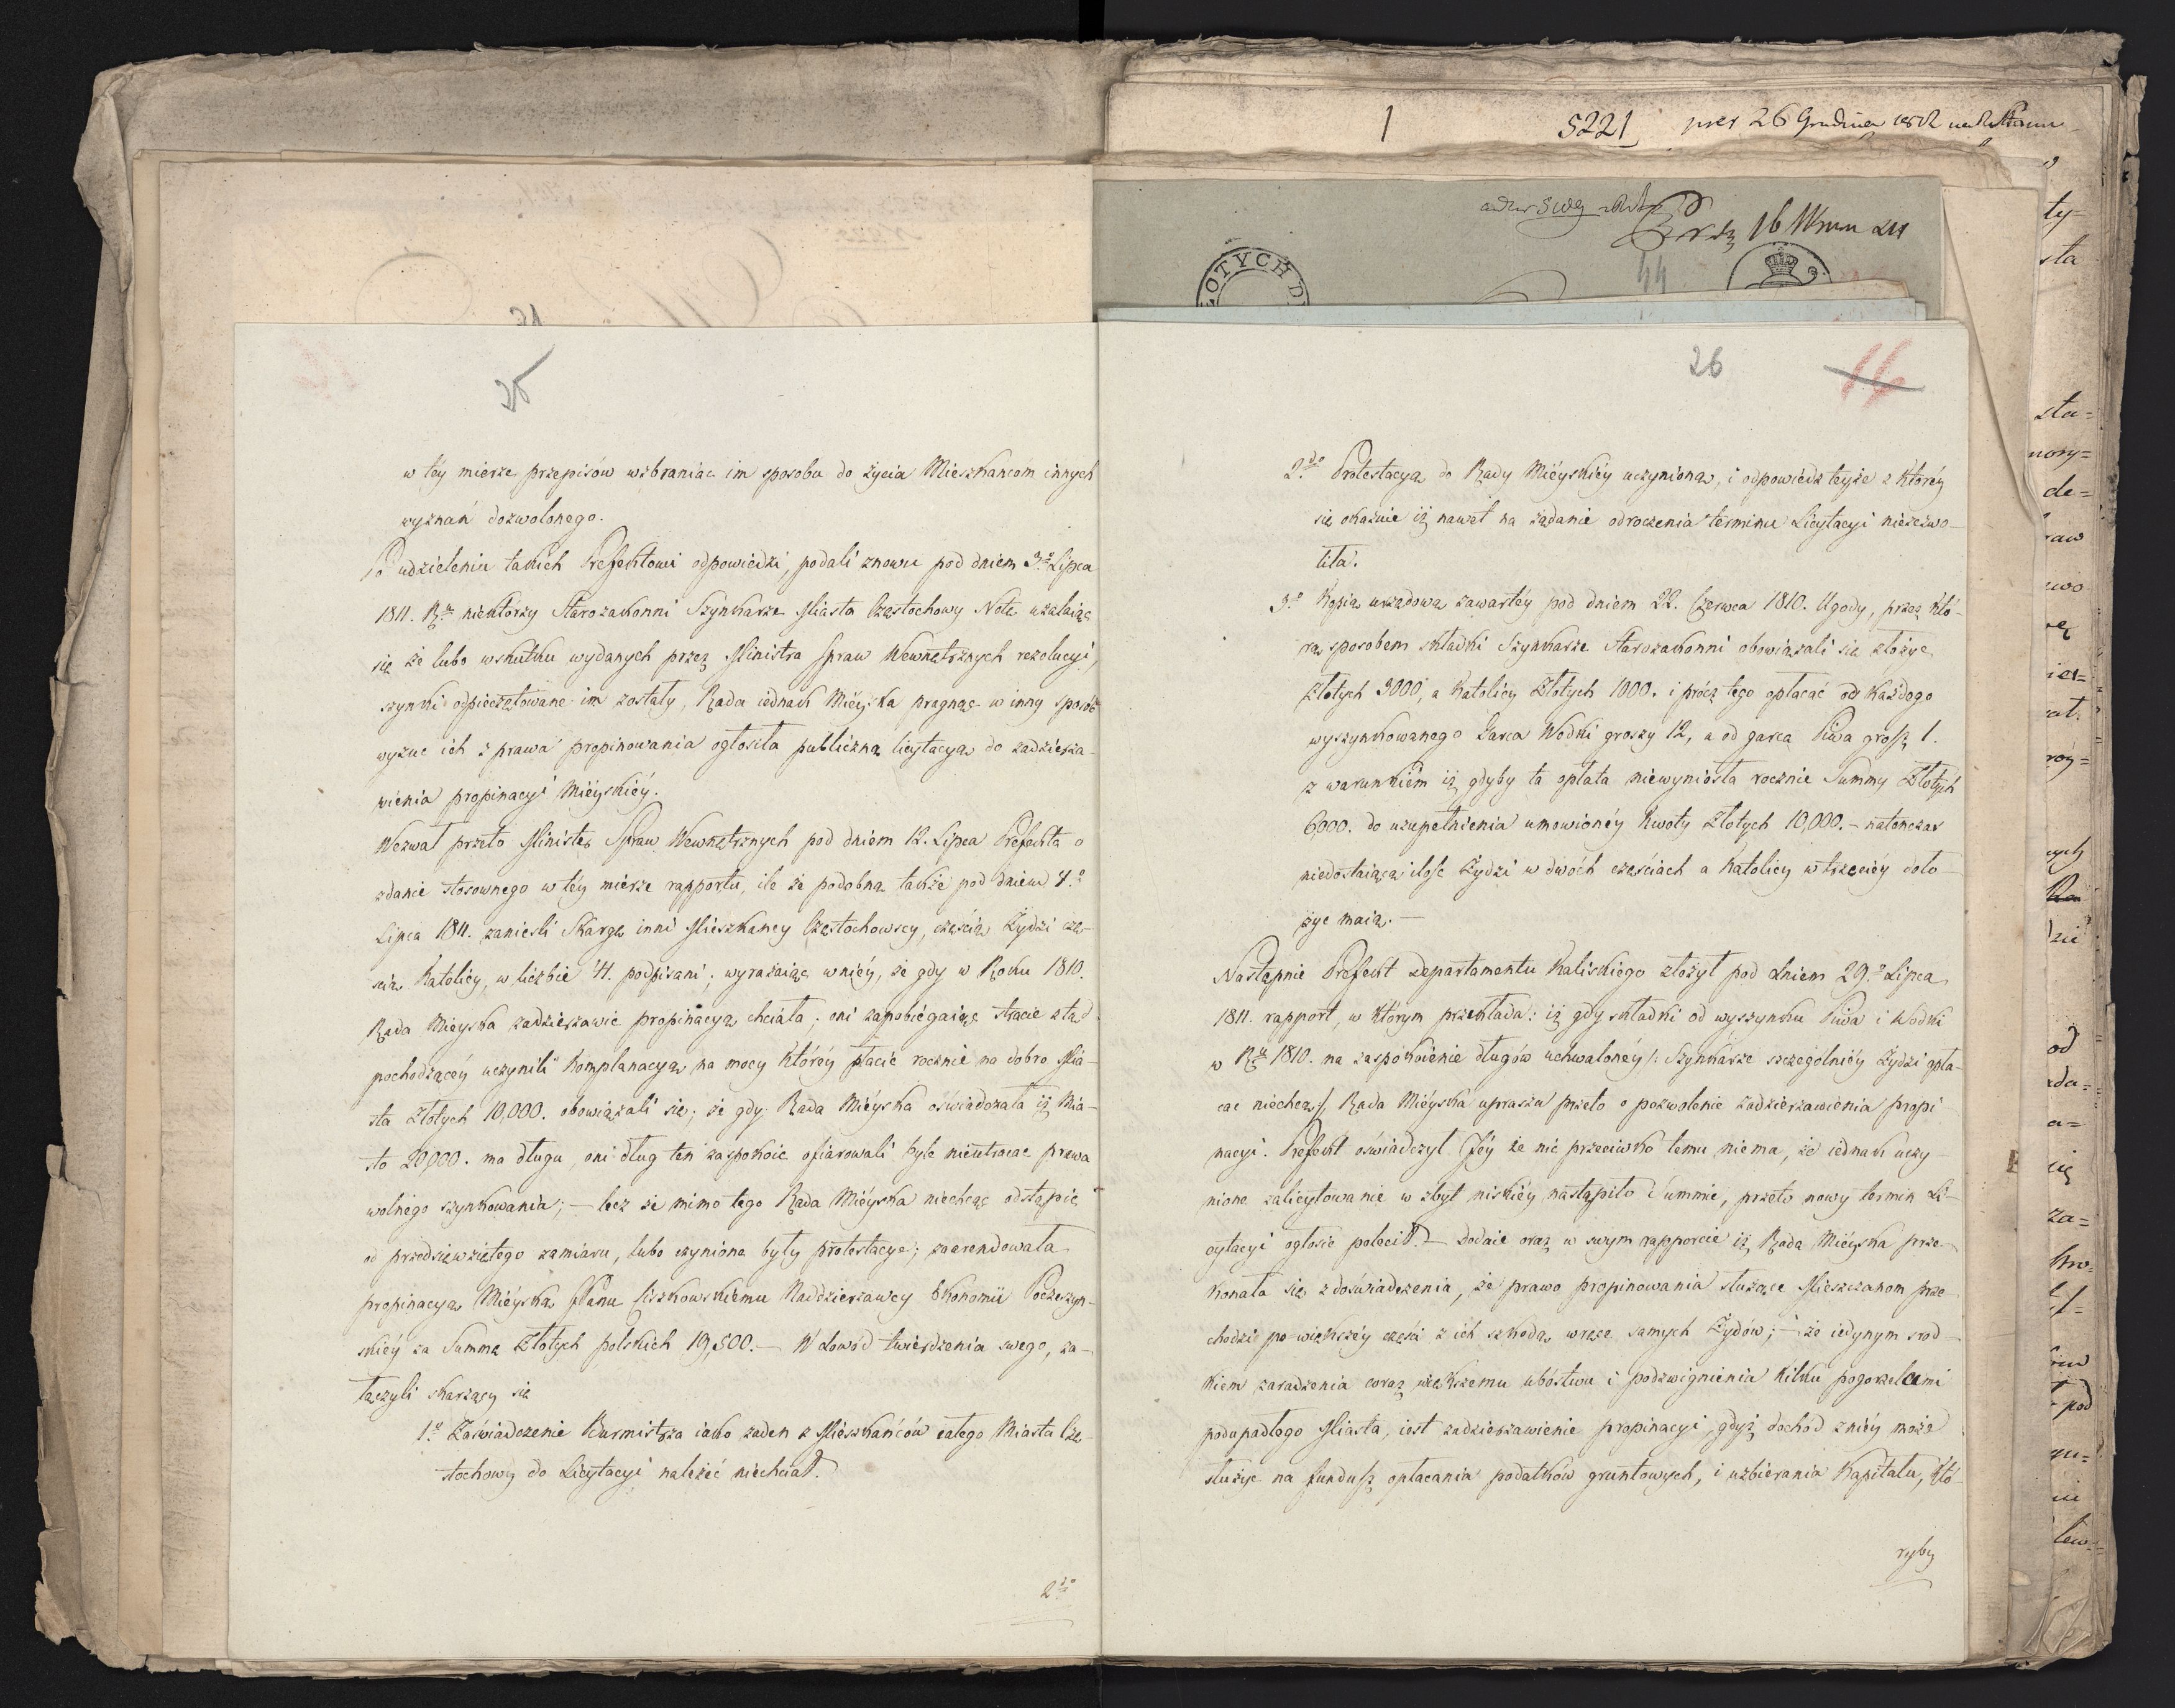 25
w téy mierze przepisów wzbraniać im sposobu do życia Mieszkańcom innych
wyznań dozwolonego.
Po udzieleniu takich Prefektowi odpowiedzi, podali znowu pod dniem 3º Lipca
1811. Rᵘ niektórzy Starozakonni Szynkarze Miasta Częstochowy Notę użalaiąc
się że lubo wskutku wydanych przez Ministra Spraw Wewnętrznych rezolucyi,
szynki odpieczętowane im zostały, Rada iednak Mieyska pragnąc w inny sposób
wyzuć ich z prawa propinowania ogłosiła publiczną licytacyą do zadzierża-
wienia propinacyi Miéyskiéy.
Wezwał przeto Minister Spraw Wewnętrznych pod dniem 12. Lipca Prefekta o
zdanie stosownego w téy mierze rapportu, ile że podobną także pod dniem 4.º
Lipca 1811. zanieśli Skargę inni Mieszkancy Częstochowscy, częścią Żydzi czę-
ścią Katolicy, w liczbie 41. podpisani; wyrażaiąc wniéy, że gdy w Roku 1810.
Rada Mieyska zadzierżawić propinacyą chciała; oni zapobiégaiąc stracie ztąd
pochodzącéy uczynili Komplanacyą na mocy któréy płacić rocznie na dobro Mia-
sta Złotych 10,000. obowiązali się; że gdy Rada Miéyska oświadczała iż Mia-
sto 20,000. ma długu, oni dług ten zaspokoić ofiarowali byle nieutracać prawa
wolnego szynkowania; — lecz że mimo tego Rada Miéyska niechcąc odstąpić
od przedsięwziętego zamiaru, lubo czynione były protestacye; zaarendowała
propinacyą Miéyską JPanu Ciszkowskiemu Naddzierżawcy Ekonomii Poczeszyn-
skiéy za Summę Złotych polskich 19,500. — W dowód twierdzenia swego, za-
łączyli skarżący się
1.º Zaświadczenie Burmistrza iako żaden z Mieszkańców całego Miasta Czę-
stochowy do Licytacyi należeć niechciał.
2do
1
5221 pres 26 Grudnia
16
44
OTYCH D
26
16
2do Protestacyą do Rady Miéyskiéy uczynioną, i odpowiédź téyże z któréy
się okazuie iż nawet na żądanie odroczenia terminu Licytacyi niezezwo-
liła.
3º Kopią urzędową zawartéy pod dniem 22. Czerwca 1810. Ugody, przez któ-
rą sposobem składki Szynkarze Starozakonni obowiązali się złożyć
Złotych 3000, a Katolicy Złotych 1000. i prócz tego opłacać od każdego
wyszynkowanego Garca Wódki groszy 12, a od garca Piwa grosz 1.
z warunkiem iż gdyby ta opłata niewyniosła rocznie Summy Złotych
6,000. do uzupełnienia umowionéy kwoty Złotych 10,000. — natenczas
niedostaiącą ilość Żydzi w dwóch częściach a Katolicy w trzeciéy doło-
żyć maią. —
Następnie Prefekt Departamentu Kaliskiego złożył pod dniem 29.º Lipca
1811. rapport, w którym przekłada: iż gdy składki od wyszynku Piwa i Wódki
w Rᵘ 1810. na zaspokoienie długów uchwalonéy /: Szynkarze szczególniéy Żydzi opła-
cać niechcą :/, Rada Miéyska uprasza przeto o pozwolenie zadzierżawienia propi-
nacyi. Prefekt oświadczył Jéy że nic przeciwko temu niema, że iednak uczy-
nione zalicytowanie w zbyt niskiéy nastąpiło Summie, przeto nowy termin Li-
cytacyi ogłosić polecił. — Dodaie oraz w swym rapporcie iż Rada Miéyska prze-
konała się z doświadczenia, że prawo propinowania służące Mieszczanom prze-
chodzi po większéy części z ich szkodą w ręce samych Żydów; — że iedynym środ-
kiem zaradzenia coraz większemu ubóstwu i podzwignienia kilku pogorzelami
podupadłego Miasta, iest zadzierżawienie propinacyi, gdyż dochód z niéy może
służyć na fundusz opłacania podatków gruntowych, i uzbierania Kapitału, któ-
ryby